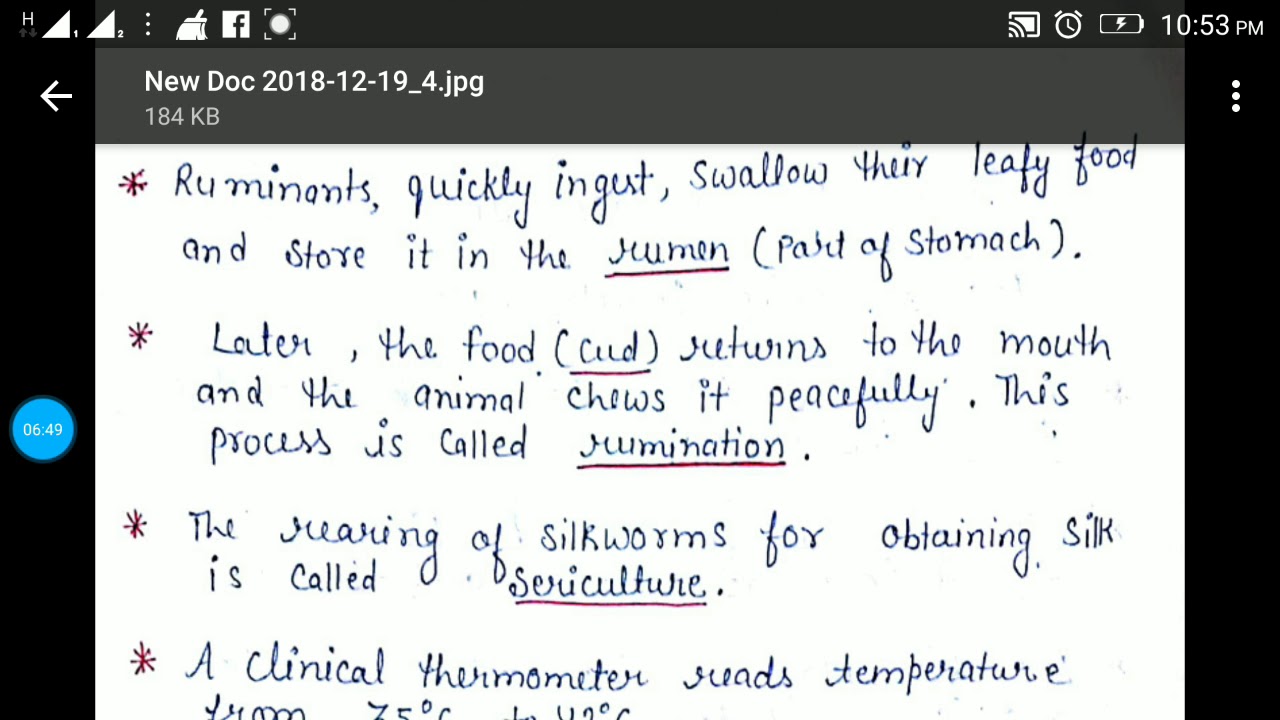 H
1
2
10:53 PM
New Doc 2018-12-19_4.jpg
184 KB
* Ruminants, quickly ingest, swallow their leafy food
and store it in the rumen (part of stomach).
* Later, the food (cud) returns to the mouth
and the animal chews it peacefully. This
06:49
process is called rumination.
* The rearing of silkworms for obtaining silk
is called sericulture.
* A clinical thermometer reads temperature
from 35°C to 42°C